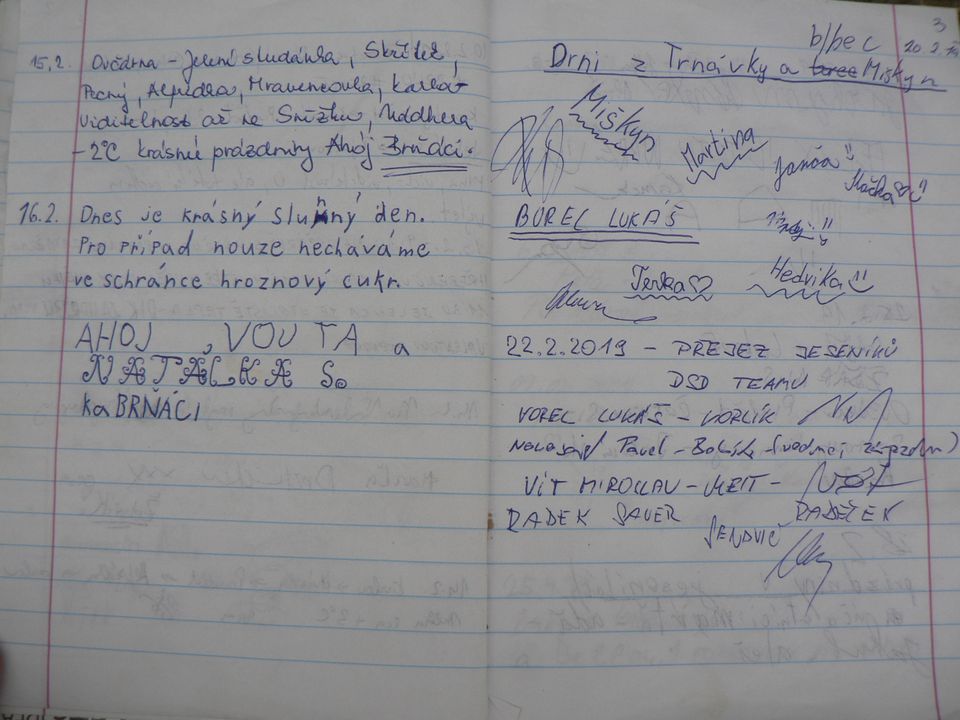 15.2. Ovčárna - Jelení studánka, Skřítek,
Pecný, Alfrédka, Mravenečník, Karlov
viditelnost až na Sněžku, Nádhera
-2°C krásné prázdniny Ahoj Brňáci.
16.2. Dnes je krásný slunný den.
Pro případ nouze necháváme
ve schránce hroznový cukr.
AHOJ, VOJTA a
NATÁLKA S.
ka BRŇÁCI
3
blbec 20.2.19
Drni z Trnávky a Miškyn
Miškyn
Martina
Janča
Mačka
BOREL LUKÁŠ
Terka Hedvika
22.2.2019 - PŘEJEZ JESENÍKŮ
DSD TEAMU
VOREL LUKÁŠ - VORLÍK
Pavel
VÍT MIROSLAV - MEIT -
RADEK SAUER RADEČEK
SENDVIČ